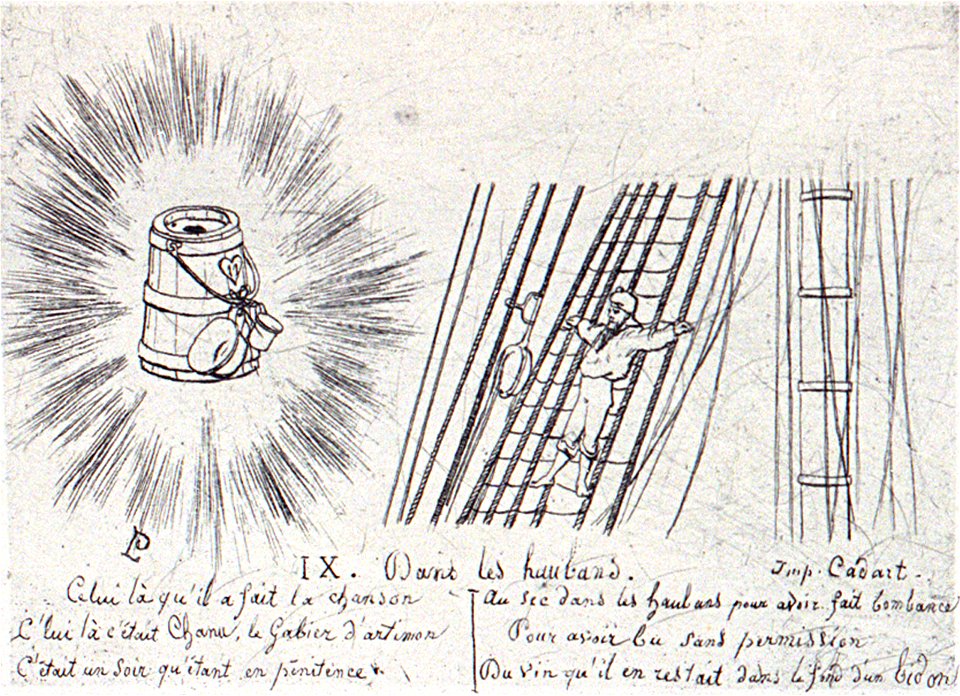 IX. Dans les haubans.
Imp. Cadart.
Celui là qu'il a fait la chanson
L'lui là c'était Chanu, le Gabier d'artimon
C'était un soir qu'étant en pénitence
Au sec dans les haubans pour avoir fait bombance
Pour avoir bu sans permission
Du vin qu'il en restait dans le fond d'un bidon